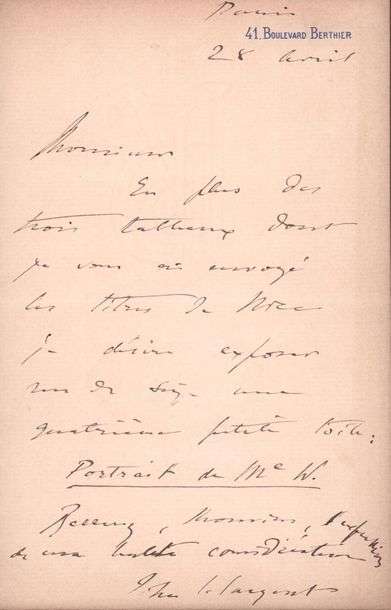 Paris
41. Boulevard Berthier
28 avril
Monsieur
En plus des
trois tableaux dont
je vous ai envoyé
les titres de Nice
je désire exposer
rue de Sèze une
quatrième petite toile:
Portrait de Me W.
Recevez, Monsieur, l'expression
de ma haute considération
John S. Sargent